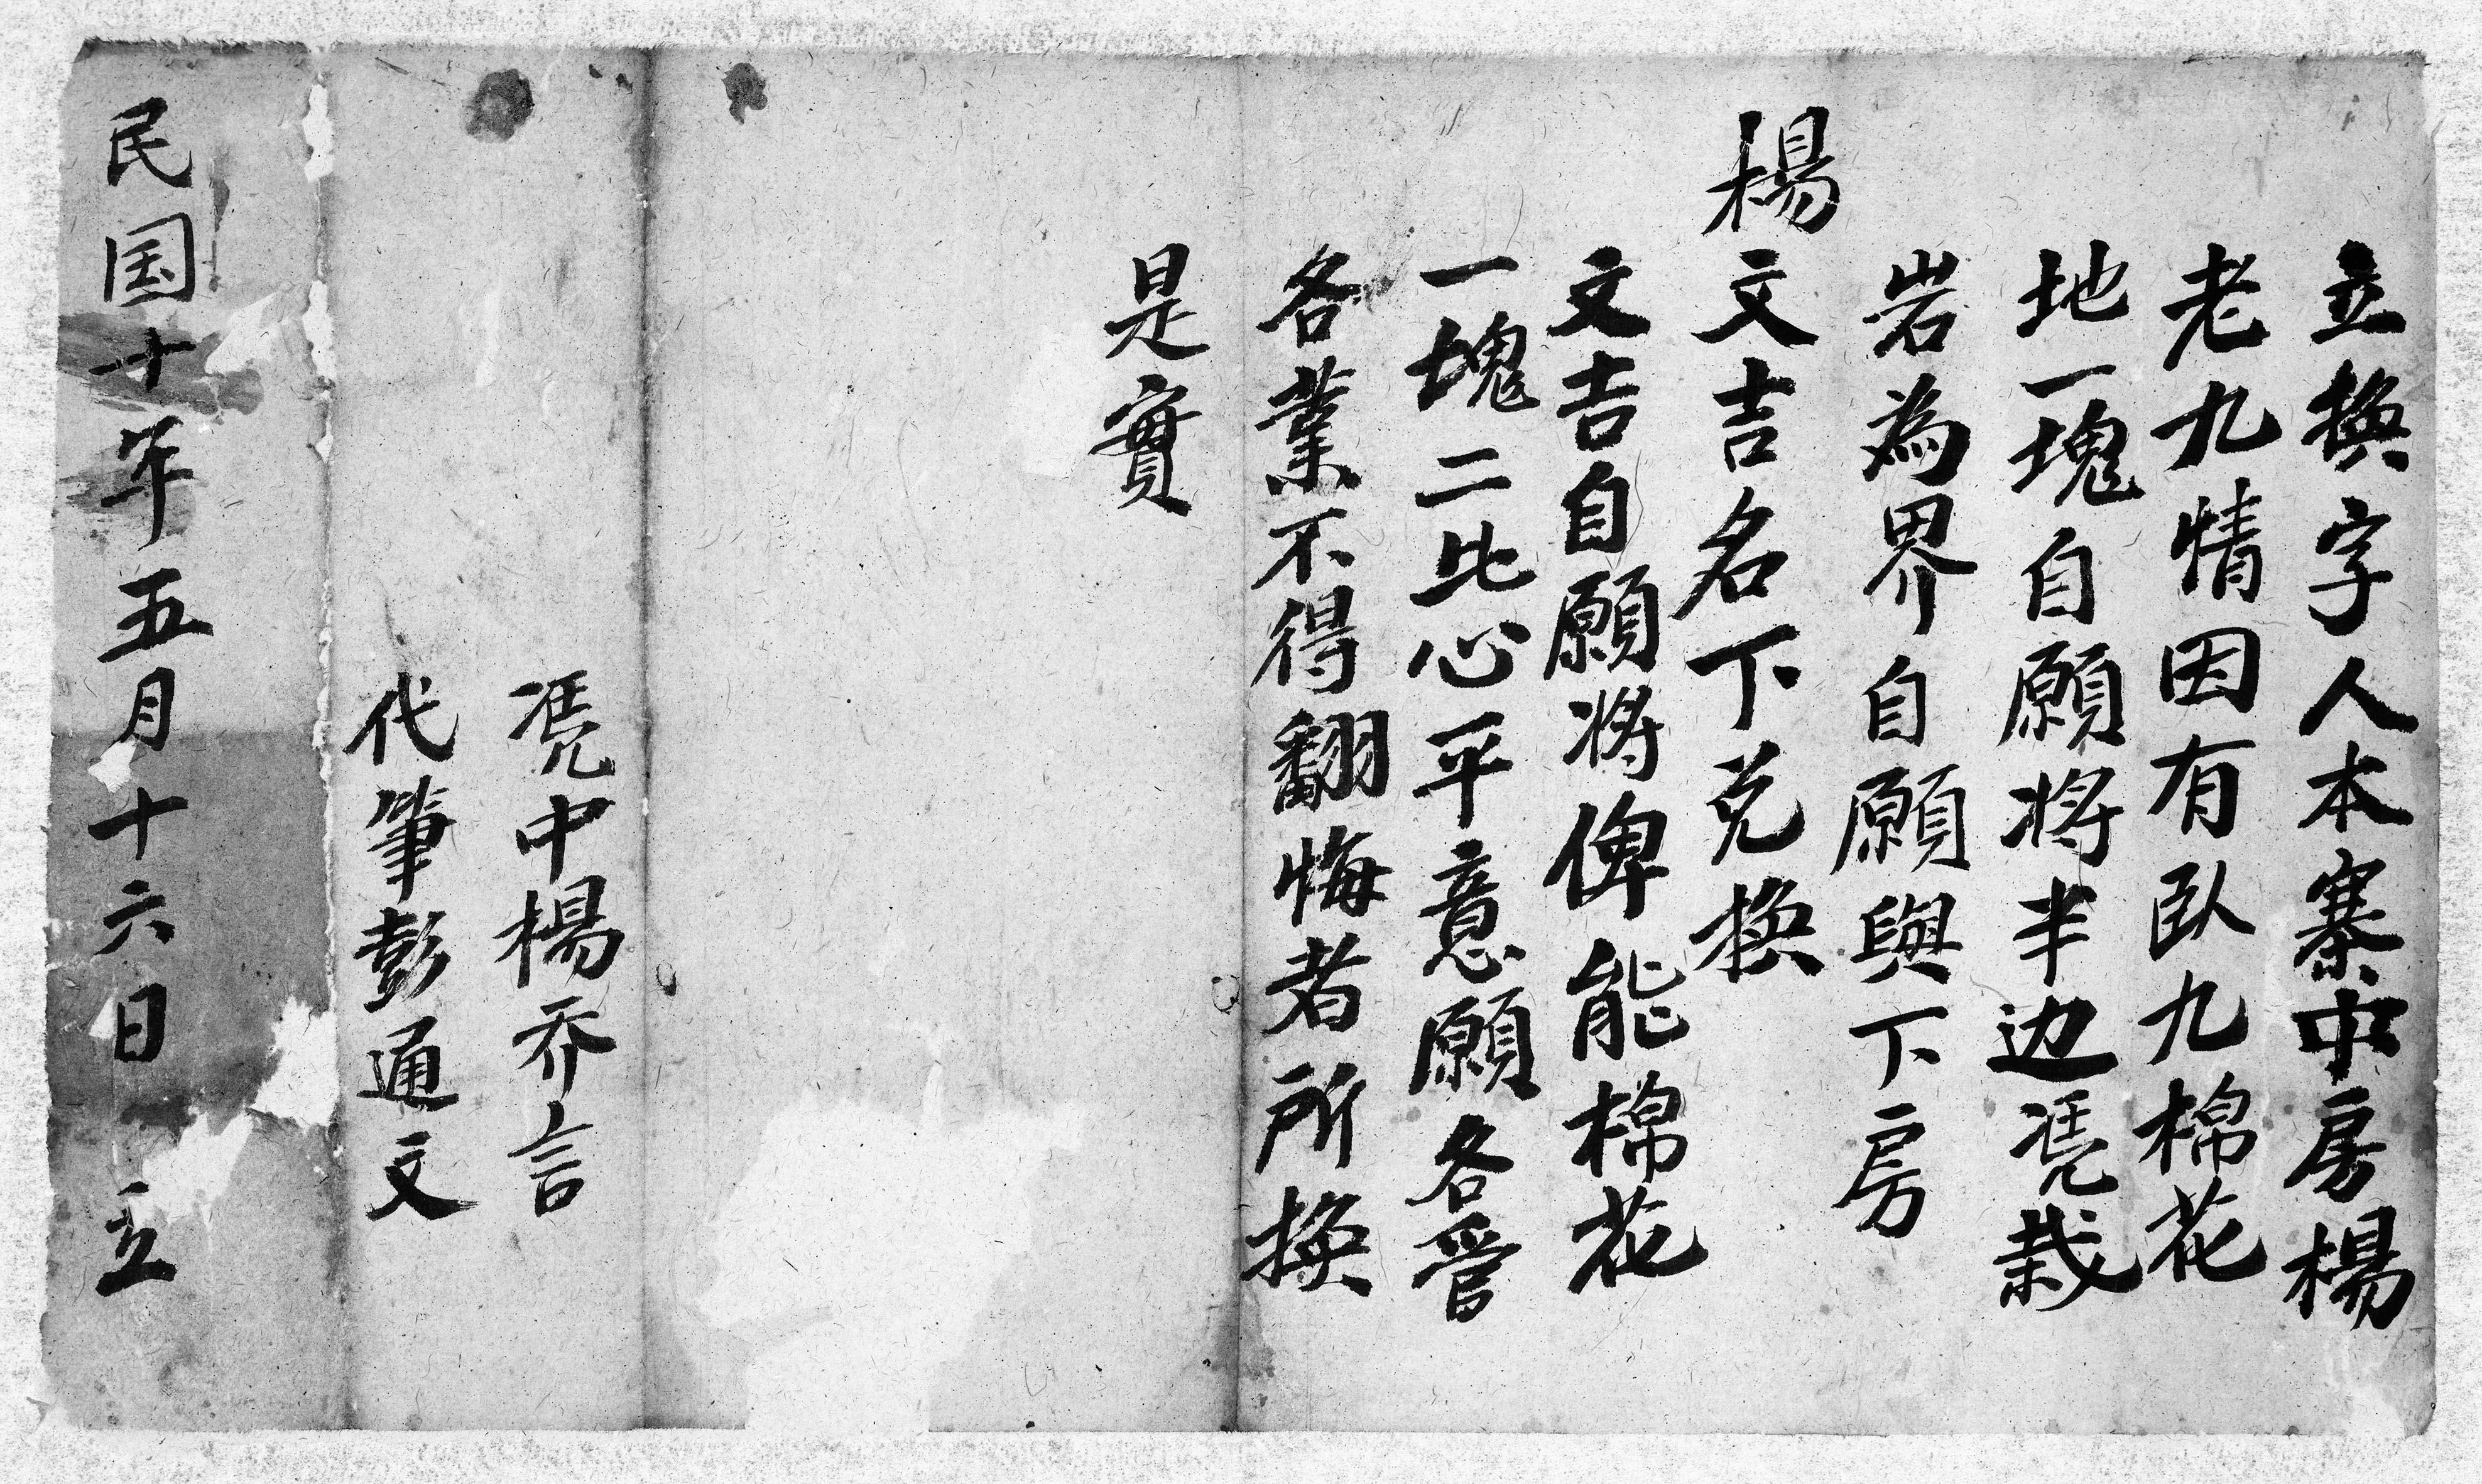 立換字人本寨中房楊
老九情因有臥九棉花
地一塊自願將半边凴栽
岩為界自願與下房
楊文吉名下兑換
文吉自願將俾能棉花
一塊二比心平意願各管
各業不得翻悔者所換
是實
凴中楊乔言
代筆彭通文
民国十年五月十六日立